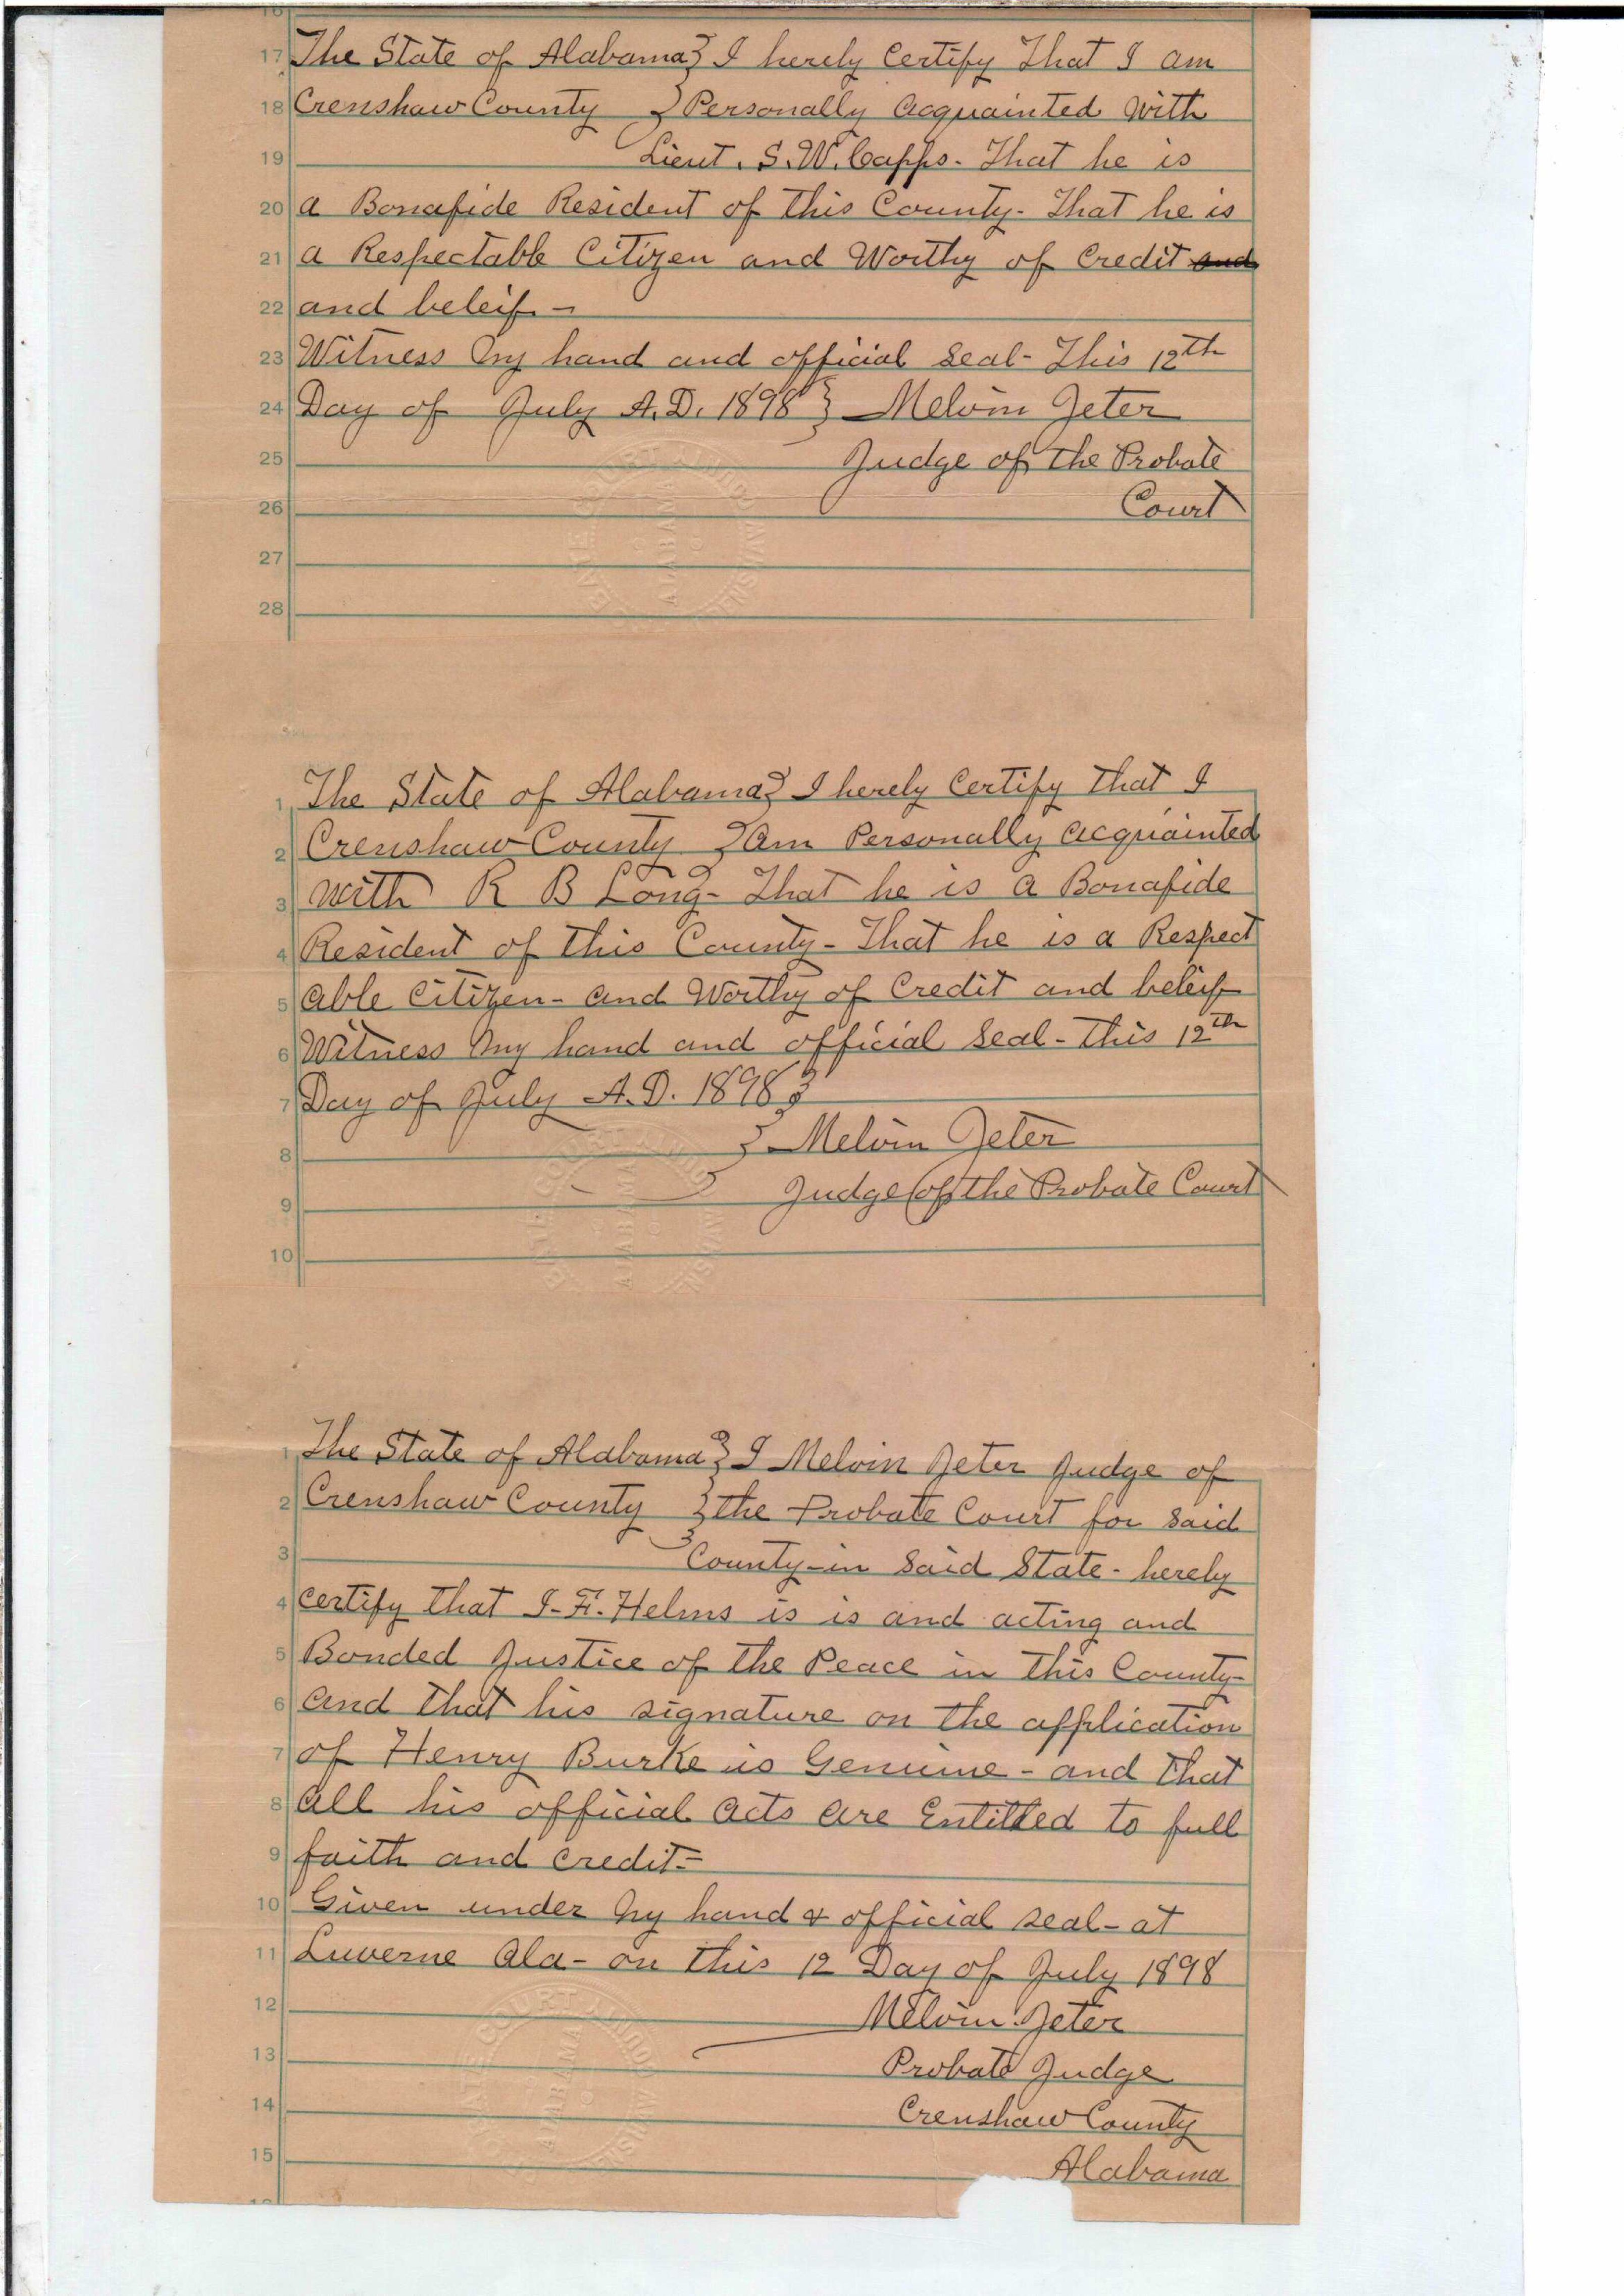 17 The State of Alabama } I herely Certify That I am
18 Crenshaw County } Personally Acquainted With
19 Lieut. S. W. Capps. That he is
20 a Bonafide Resident of this County - That he is
21 a Respectable Citizen and Worthy of Credit and
22 and beleif -
23 Witness My hand and official Seal - This 12th
24 Day of July A.D. 1898 } Melvin Jeter
25 Judge of the Probate
26 Court
27
28
1 The State of Alabama } I herely Certify That I
2 Crenshaw County } Am Personally Acquainted
3 With R B Long - That he is a Bonafide
4 Resident of this County - That he is a Respect
5 able Citizen - and Worthy of Credit and beleif
6 Witness My hand and official Seal - this 12th
7 Day of July A.D. 1898 }
8 } Melvin Jeter
9 Judge of the Probate Court
10
1 The State of Alabama } I Melvin Jeter Judge of
2 Crenshaw County } the Probate Court for Said
3 County - in Said State - herely
4 certify that I. F. Helms is is and acting and
5 Bonded Justice of the Peace in this County -
6 and that his signature on the application
7 of Henry Burke is Genuine - and that
8 all his official acts are Entitled to full
9 faith and credit =
10 Given under My hand & official seal - at
11 Luverne Ala - on this 12 Day of July 1898
12 Melvin Jeter
13 Probate Judge
14 Crenshaw County
15 Alabama